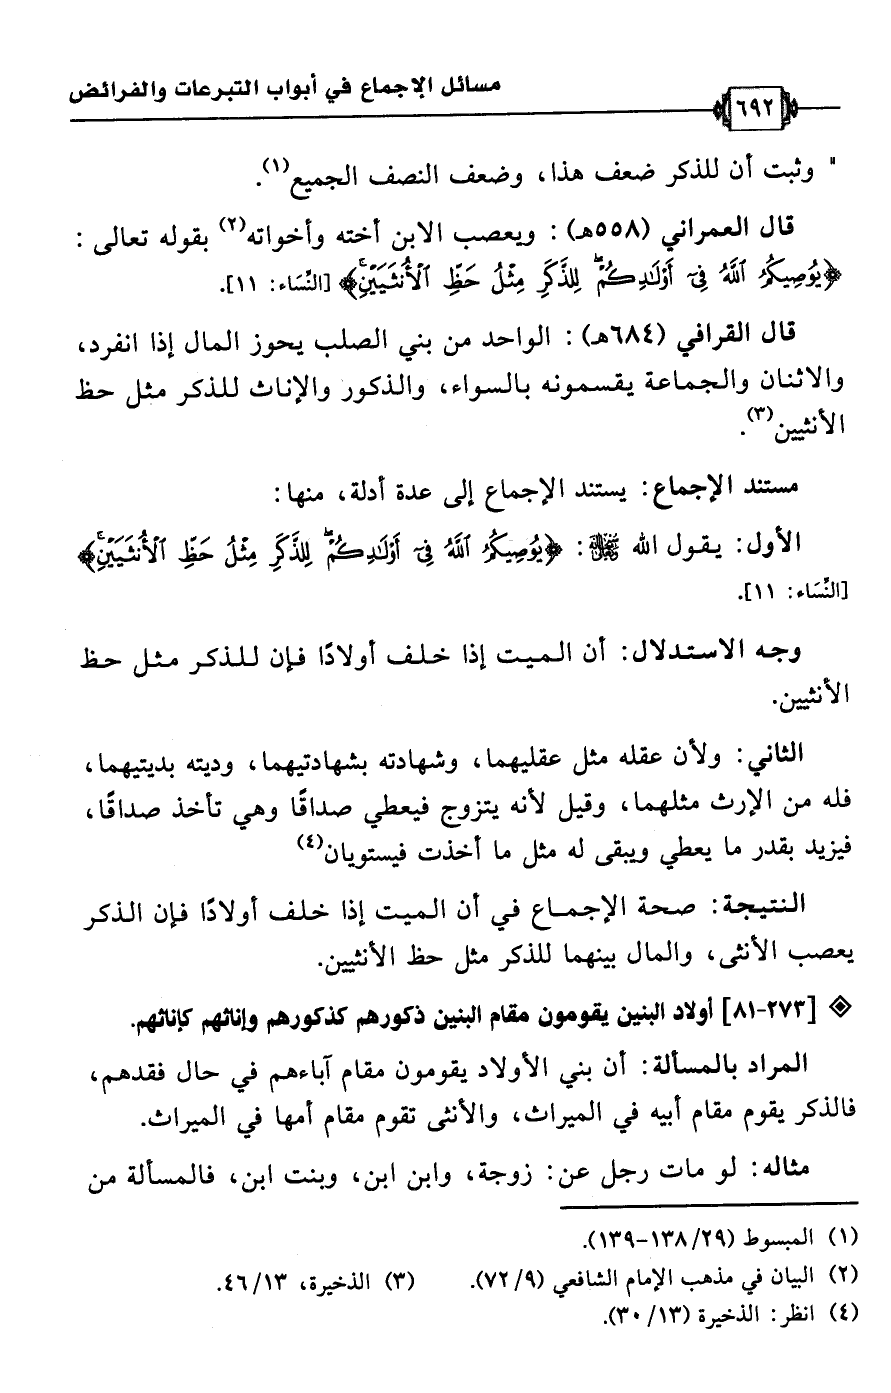 مسائل الإجماع في أبواب التبرعات والفرائض
٦٩٢
" وثبت أن للذكر ضعف هذا، وضعف النصف الجميع(١).
قال العمراني (٥٥٨هـ): ويعصب الابن أخته وأخواته(٢) بقوله تعالى:
﴿يُوصِيكُمُ اللَّهُ فِي أَوْلَادِكُمْ لِلذَّكَرِ مِثْلُ حَظِّ الْأُنثَيَيْنِ﴾ [النِّسَاء: ١١].
قال القرافي (٦٨٤هـ): الواحد من بني الصلب يحوز المال إذا انفرد،
والاثنان والجماعة يقسمونه بالسواء، والذكور والإناث للذكر مثل حظ
الأنثيين(٣).
مستند الإجماع: يستند الإجماع إلى عدة أدلة، منها:
الأول: يقول الله ﷻ: ﴿يُوصِيكُمُ اللَّهُ فِي أَوْلَادِكُمْ لِلذَّكَرِ مِثْلُ حَظِّ الْأُنثَيَيْنِ﴾
[النِّسَاء: ١١].
وجه الاستدلال: أن الميت إذا خلف أولادًا فإن للذكر مثل حظ
الأنثيين.
الثاني: ولأن عقله مثل عقليهما، وشهادته بشهادتيهما، وديته بديتيهما،
فله من الإرث مثلهما، وقيل لأنه يتزوج فيعطي صداقًا وهي تأخذ صداقًا،
فيزيد بقدر ما يعطي ويبقى له مثل ما أخذت فيستويان(٤)
النتيجة: صحة الإجماع في أن الميت إذا خلف أولادًا فإن الذكر
يعصب الأنثى، والمال بينهما للذكر مثل حظ الأنثيين.
[٢٧٣-٨١] أولاد البنين يقومون مقام البنين ذكورهم كذكورهم وإناثهم كإناثهم.
المراد بالمسألة: أن بني الأولاد يقومون مقام آباءهم في حال فقدهم،
فالذكر يقوم مقام أبيه في الميراث، والأنثى تقوم مقام أمها في الميراث.
مثاله: لو مات رجل عن: زوجة، وابن ابن، وبنت ابن، فالمسألة من
(١) المبسوط (٢٩/ ١٣٨-١٣٩).
(٢) البيان في مذهب الإمام الشافعي (٩/ ٧٢). (٣) الذخيرة، ١٣/ ٤٦.
(٤) انظر: الذخيرة (١٣/ ٣٠).